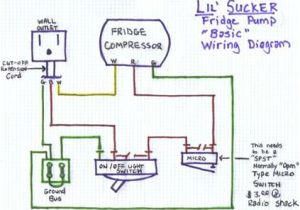 LIL' SUCKER
Fridge Pump
"Basic"
Wiring Diagram
WALL
OUTLET
FRIDGE
COMPRESSOR
CUT-OFF
EXTENSION
Cord
G B W
W R G
This needs
to be a
"SPST"
Normally "Open"
Type Micro
SWITCH
$3.00 @
Radio Shack
MICRO
ON/OFF LIGHT
SWITCH
Ground
Bus